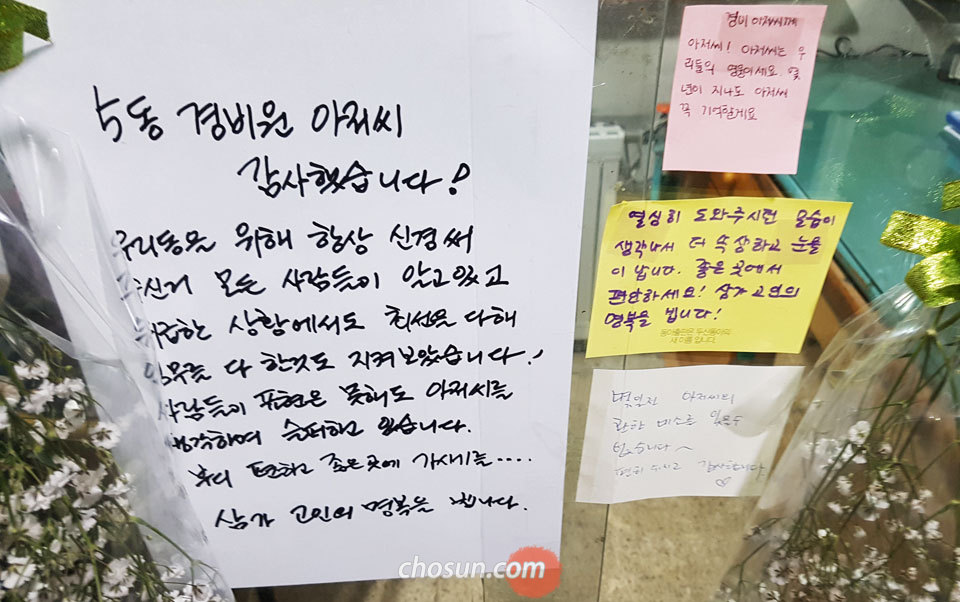 5동 경비원 아저씨
감사했습니다!
우리동을 위해 항상 신경써
주신거 모든 사람들이 알고있고
위급한 상황에서도 최선을 다해
임무를 다 한것도 지켜보았습니다!
사람들이 표현은 못해도 아저씨를
생각하며 슬퍼하고 있습니다.
부디 편하고 좋은곳에 가시기를....
삼가 고인의 명복을 빕니다.
경비아저씨께
아저씨! 아저씨는 우
리들의 영웅이세요. 몇
년이 지나도 아저씨
꼭 기억할게요
열심히 도와주시던 모습이
생각나서 더 속상하고 눈물
이 납니다. 좋은 곳에서
편안하세요! 삼가 고인의
명복을 빕니다!
동아출판은 두산동아의
새 이름입니다.
아저씨의
환한 미소를 잊을수
없습니다
편히 쉬시고 감사합니다
chosun.com